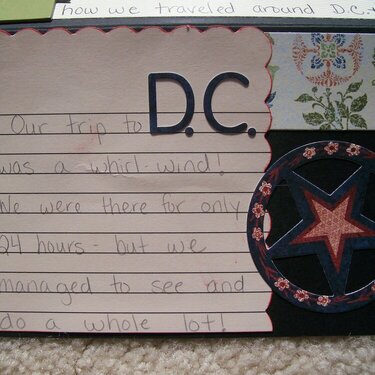 how we traveled around D.C.
Our trip to D.C.
was a whirl wind!
We were there for only
24 hours - but we
managed to see and
do a whole lot!